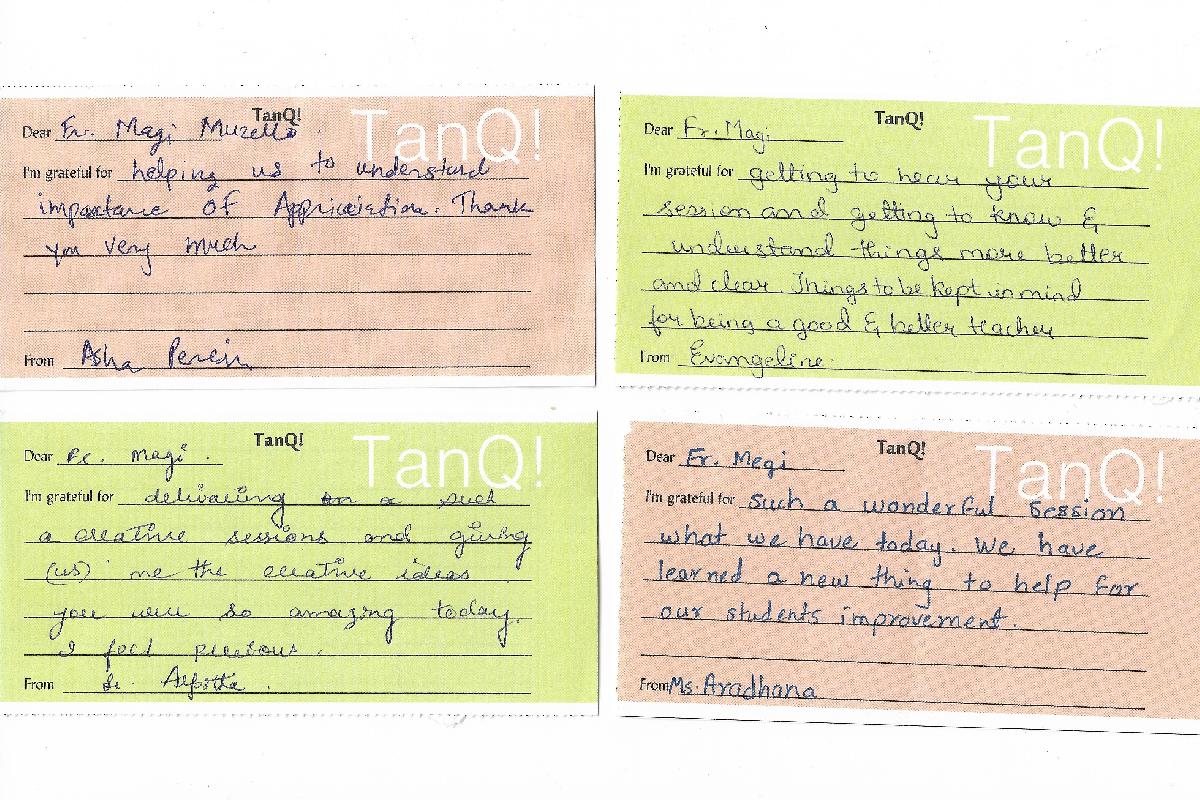 TanQ!
TanQ!
Dear Fr. Magi Muzello.
I'm grateful for helping us to understand
importance OF Appriciation. Thank
you very much
From Asha
TanQ!
TanQ!
Dear Fr. Magi
I'm grateful for getting to hear your
session and getting to know &
understand things more better
and clear. Things to be kept in mind
for being a good & better teacher
From Evangeline.
TanQ!
TanQ!
Dear Magi.
I'm grateful for delivering a such
a creative sessions and giving
(us) me the creative ideas
you were so amazing today.
I feel
From Sr.
TanQ!
TanQ!
Dear Fr. Megi
I'm grateful for such a wonderful session
what we have today. We have
learned a new thing to help for
our students improvement.
From Ms. Aradhana